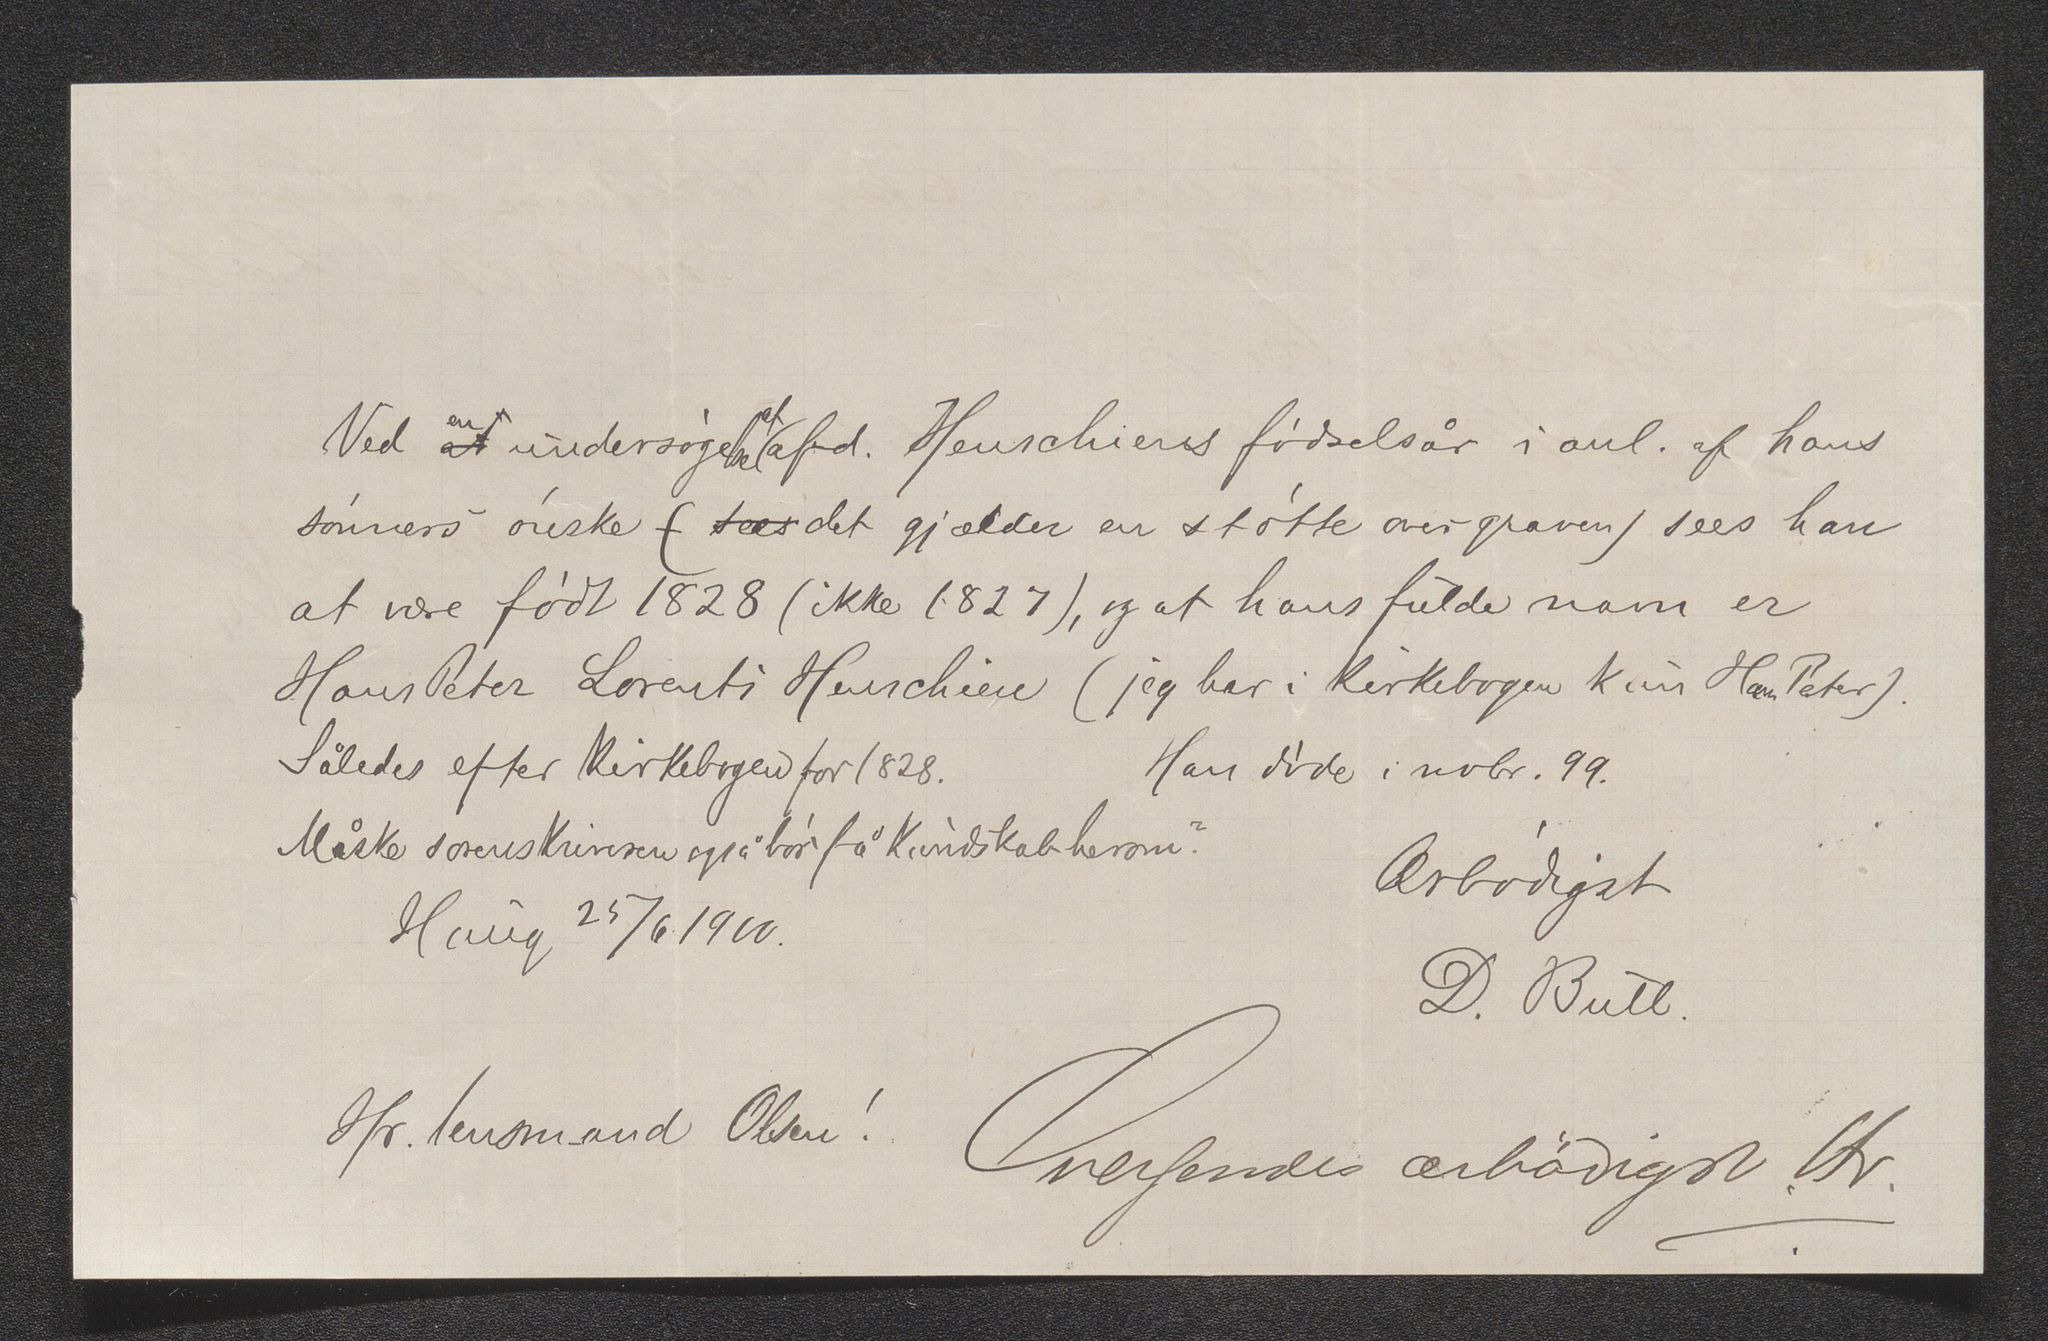 Ved en undersøgelse af afd. Henschiens fødselsår i anl. af hans
sønners ønske (det gjælder en støtte over graven) sees han
at være født 1828 (ikke 1827), og at hans fulde navn er
Hans Peter Lorents Henschien (jeg har i kirkebogen kun Hans Peter).
Således efter kirkebogen for 1828. Han døde i novbr. 99.
Måske sorenskriveren også bør få kundskab herom?
Haug 25/6 1900.
Ærbødigst
D. Bull.
Hr. lensmand Olsen!
Oversendes ærbödigst Hr.